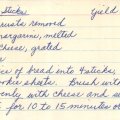 Sticks yield
crusts removed
margarine, melted
cheese, grated
ce of bread into 4 sticks,
cookie sheets. Brush with
evenly with cheese and
for 10 to 15 minutes o